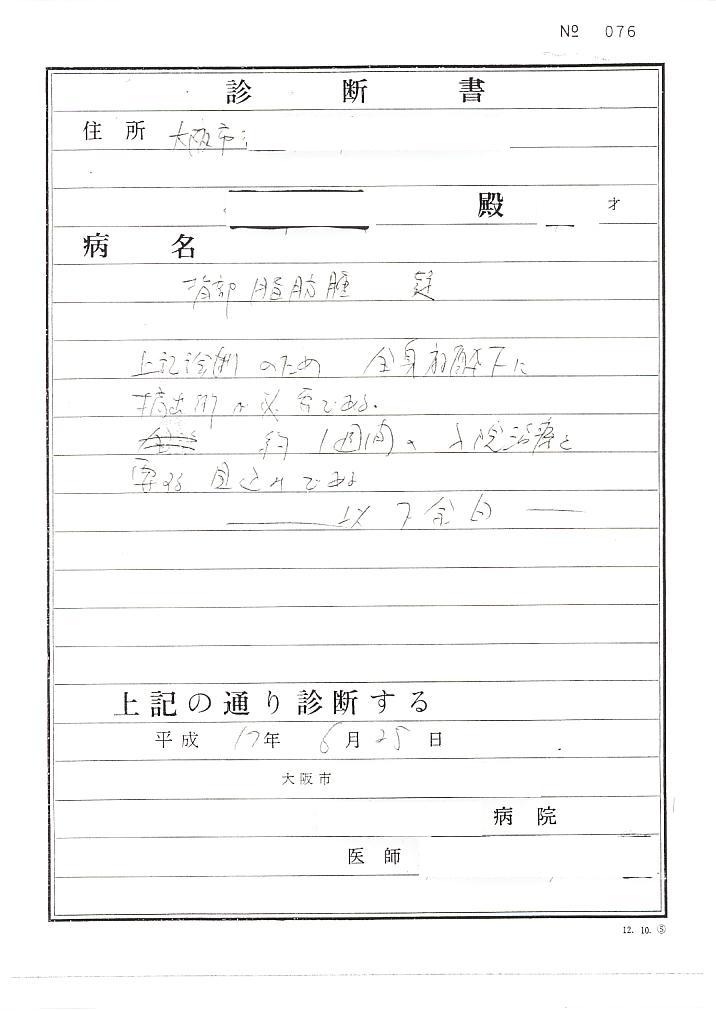 № 076
診断書
住所 大阪市
殿 才
病名
背部脂肪腫 疑
上記診断のため 全身麻酔下に
摘出術が必要である。
約1週間の入院治療を
要する見込みである
以下余白
上記の通り診断する
平成17年6月25日
大阪市
病院
医師
12. 10. ⑤